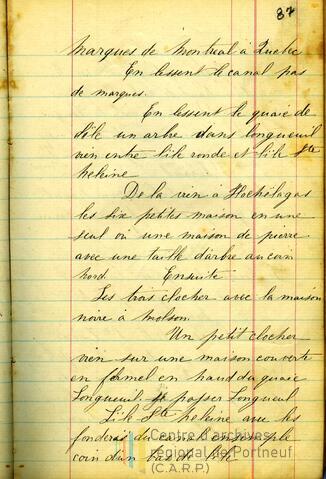 87
Marques de Montréal à Quebec
En lessent le canal pas
de marques.
En lessent le quaie de
l'ile un arbre dans longueuil
vien entre l'ile ronde et l'ile Ste
heleine
De la vien à Hochelagas
les six petites maison en une
seul ou une maison de pierre
avec une talle d'arbre au coin
nord. Ensuite
Les trois clocher avec la maison
noire à Molson.
Un petit clocher
vien sur une maison couverte
en en haud du quaie
Longueuil. passer Longueul
L'ile Ste heleine avec les
fonderis du
coin d'un bas de l'ile
Centre d'archives
régional de Portneuf
(C.A.R.P.)